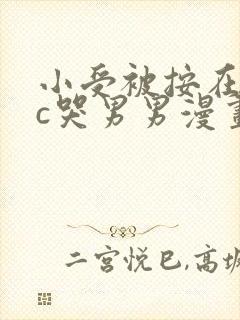 小受被按在
c哭男男漫畫
二宫悦巳,高坂